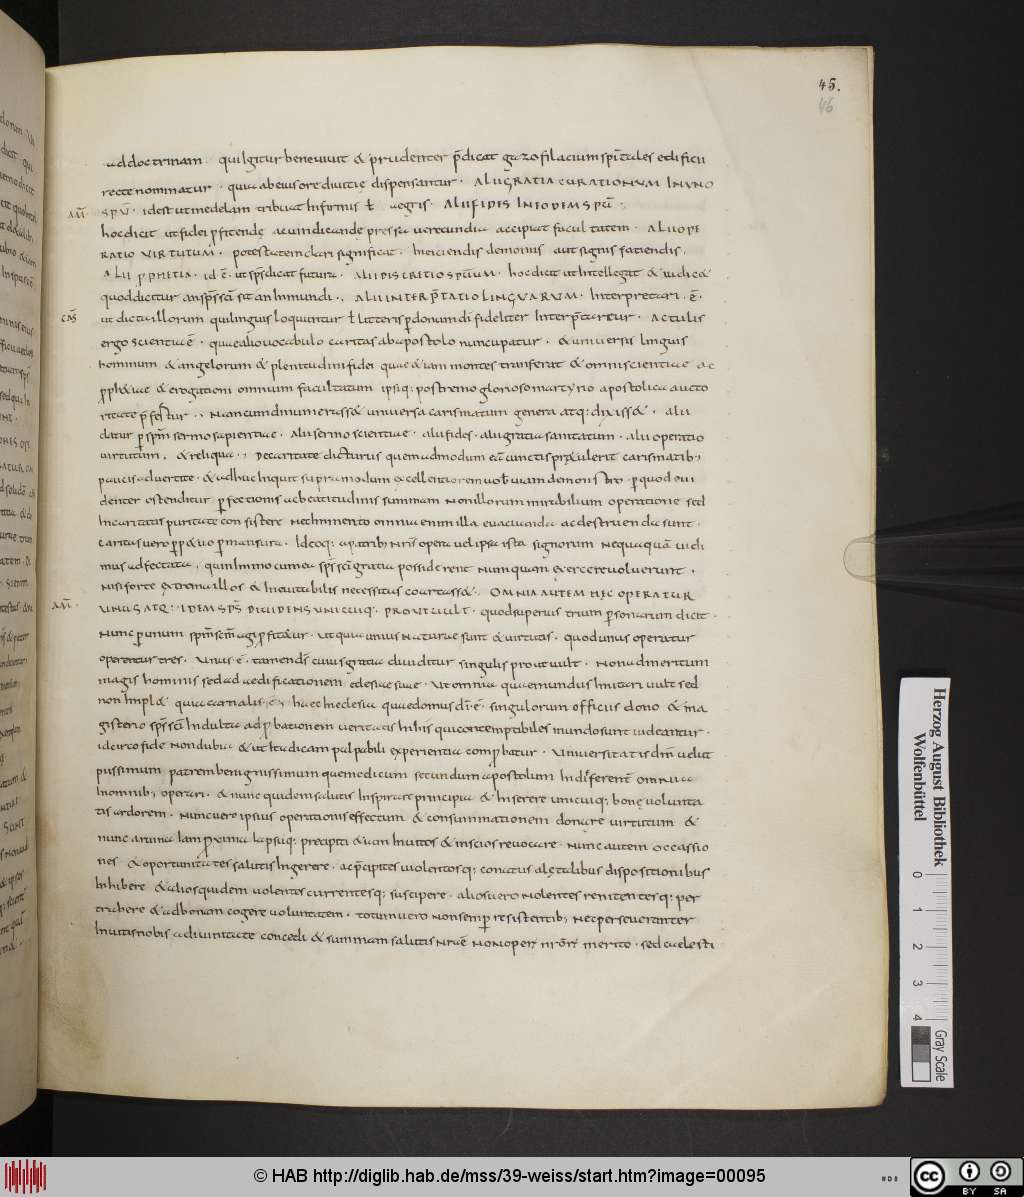 45.
46
ad doctrinam. qui igitur bene vivit & prudenter p̄dicat gazofilacium sp̄itales edificii
recte nominatur. quia ab eius ore divitiȩ dispensantur. ALII GRATIA CURATIONUM IN UNO
AM̄ SPŪ. id est ut medelam tribuat Infirmis ł aegris. ALII FIDES IN EODEM SPŪ.
hoc dicit ut fidei
verecundia accipiat facultatem. ALII OPE
RATIO VIRTUTUM. potestatem dari significat. In eiciendis demoniis aut signis faciendis.
ALII PROPHETIA. id. ē. ut sp̄s dicat futura. ALII DISCRETIO SPIRITUUM. hoc dicit ut Intellegat & iudic&
quod dicitur an sp̄s sc̄i sit an Inmundi. ALII INTERP̄TATIO LINGUARUM. Interpretari. ē.
CAS̄ ut dicta illorum qui linguis loquuntur ł litteris p donum dī fideliter Interp̄tatur. Actulis
ergo scientia ē. quae alio vocabulo caritas ab apostolo nuncupatur. & universis linguis
hominum & angelorum & plenitudini fidei quae etiam montes transferat & omni scientiae ac
proph&iae & erogationi omnium facultatum ipsiq: postremo glorioso martyrio apostolica aucto
ritate p̄fertur. Nam cum dinumerass& universa carismatum genera atq: dixiss&. alii
datur p sp̄m sermo sapientiae. Alii sermo scientiae. alii fides. alii gratia sanitatum. alii operatio
virtutum. & reliqua. De caritate dicturus quemadmodum eā cunctis p̄tulerit carismatib;
paucis advertite. & adhuc Inquit supra modum excellentiorem vob̄ viam demonstro. p quod evi
denter ostenditur p fectionis ac beatitudinis summam Non illorum mirabilium operatione sed
In caritatis puritate consistere Nec Inmerito omnia enim illa evacuanda ac destruenda sunt.
caritas vero p p&uo p mansura. Ideoq: a patrib; Nr̄is opera vel ipsa ista signorum Nequaquā vidi
mus adfectata. quin Immo cum ea sp̄s sc̄i gratia possiderent Numquam exercere voluerunt.
Nisi forte extrema illos & Inevitabilis necessitas coartass&. OMNIA AUTEM HEC OPERATUR
AM̄ UNUS ATQ: IDEM SPS̄ DIVIDENS UNICUIQ: PROUT VULT. quod superius trium personarum dicit.
Nunc p unum sp̄m sc̄m agi p fit&ur. Ut quia unius Naturae sunt & virtutis. quod unus operatur
operentur tres. Unus ē. tamen ds̄ cuius gratia dividitur singulis prout vult. Non ad meritum
magis hominis sed ad aedificationem eclesiae suae. Ut omnia quae mundus Imitari vult sed
non Impl& quia carnalis ē haec In eclesia quae domus dī. ē. singulorum officiis dono & ma
gisterio sp̄s sc̄i Indulta ad p bationem veritatis In his qui contemptibiles mundo sunt videantur.
id circo fide Non dubia & ut Ita dicam palpabili experientia conp batur. Universitatis dm̄ velut
piissimum patrem benignissimum quemedicum secundum apostolum Indifferent omnia
In omnib; operari. & nunc quidem salutis Inspirare principia & Inserere unicuiq: bonȩ volunta
tis ardorem. Nunc vero ipsius operationis effectum & consummationem donare virtutum &
nunc a ruina Iam p xima lapsuq: precipiti etiam Invitos & inscios revocare. Nunc autem occassio
nes & oportunitates salutis Ingerere. ac p̄cipites violentosq: conatus alȩtalibus dispositionibus
Inhibere & alios quidem volentes currentesq: suscipere. alios vero Nolentes renitentesq: per
trahere & ad bonam cogere voluntatem. totum vero Non semp resistentib; Nec perseveranter
Invitis nobis a divinitate concedi & summam salutis Nr̄ae Non oper Nr̄or merito. sed caelesti
Herzog August Bibliothek
Wolfenbüttel
0 1 2 3 4
Gray Scale
© HAB http://diglib.hab.de/mss/39-weiss/start.htm?image=00095
cc BY SA